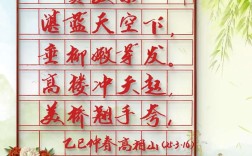 湛蓝天空下，
垂柳嫩芽发。
高楼冲天起，
美桥翔手夸，
乙巳仲春·高祖山(25·3·16)